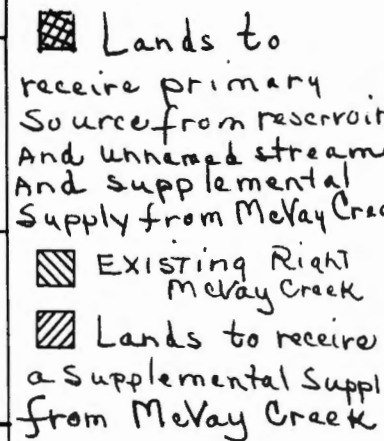 Lands to
receive primary
Source from reservoir
And unnamed stream
And supplemental
Supply from McVay Cree
Existing Right
McVay Creek
Lands to receive
a Supplemental Suppl
from McVay Creek